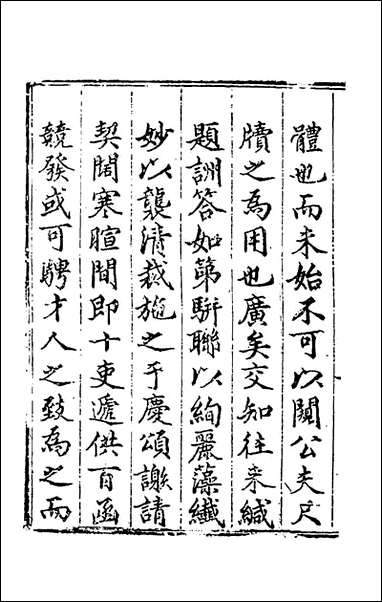 體也而未始不可以關公夫尺
牘之為用也廣矣交知往来緘
題訓答如第駢聯以絢麗藻纎
妙以襲清裁施之于慶頌謝請
契闊寒暄間即十吏遞供百函
競發或可騁才人之致為之而